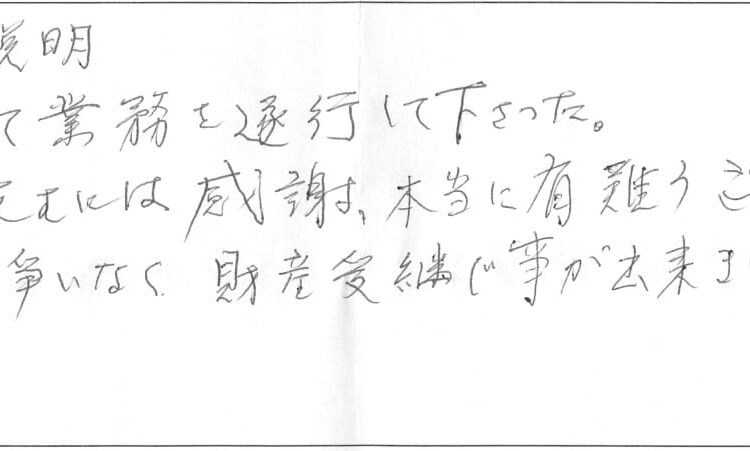 説明
て業務を遂行して下さった。
むには感謝は、本当に有難う
争いなく財産受継ぐ事が出来ま